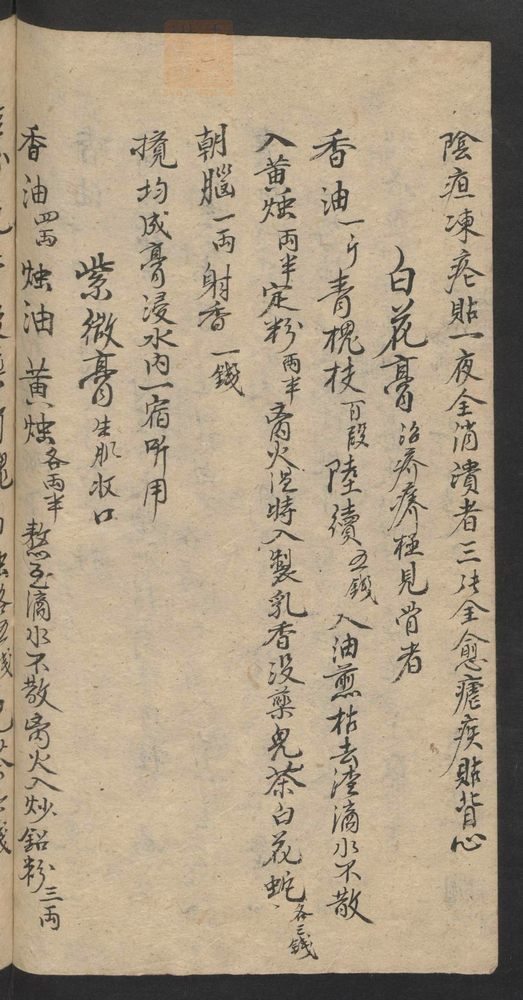 陰疽凍瘡貼一夜全消潰者三張全愈瘧疾貼背心
白花膏 治疥癢極見骨者
香油一斤青槐枝百段陸續五錢入油煎枯去渣滴水不散
入黃燭兩半定粉兩半离火温時入製乳香没藥兒茶白花蛇各三錢
朝腦一兩射香一錢
攪均成膏浸水内一宿听用
紫微膏 生肌收口
香油四兩燭油黃燭各兩半熬至滴水不散离火入炒鉛粉三兩